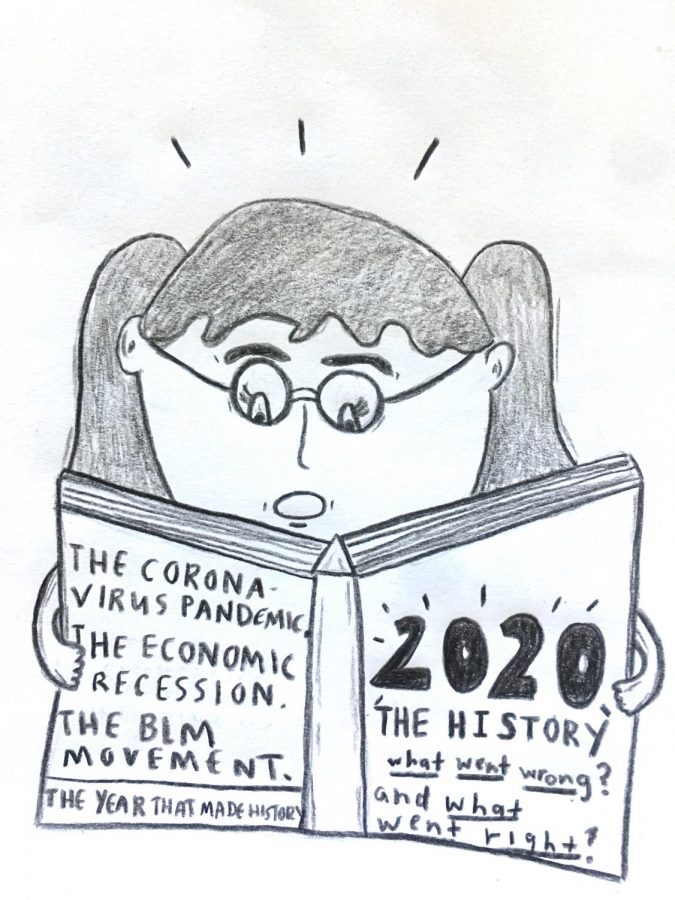 THE CORONA-
VIRUS PANDEMIC.
THE ECONOMIC
RECESSION.
THE BLM
MOVEMENT.
THE YEAR THAT MADE HISTORY
2020
THE HISTORY
what went wrong?
and what
went right?